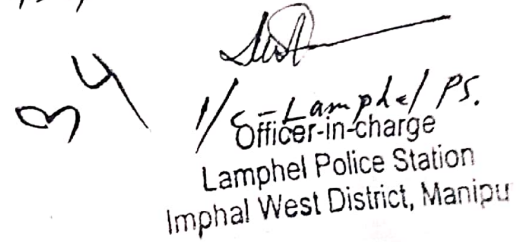 I/C - Lamphel PS.
Officer-in-charge
Lamphel Police Station
Imphal West District, Manipu